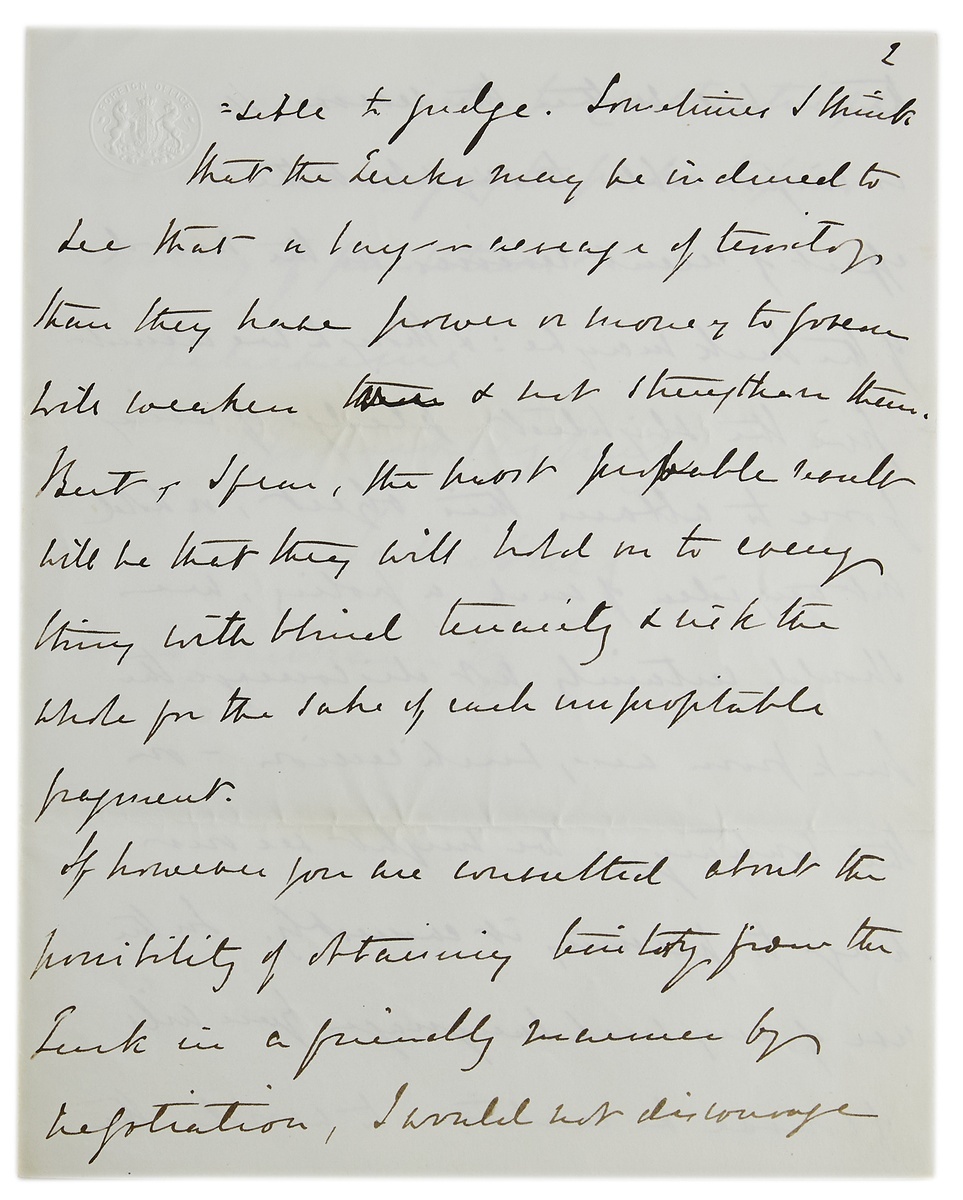 2
=sible to judge. Sometimes I think
that the Turks may be induced to
see that a larger acreage of territory
than they have power or money to govern
will weaken them & not strengthen them.
But, I fear, the most probable result
will be that they will hold on to every
thing with blind tenacity & risk the
whole for the sake of each unprofitable
fragment.
If however you are consulted about the
possibility of obtaining territory from the
Turk in a friendly manner by
negotiation, I would not discourage